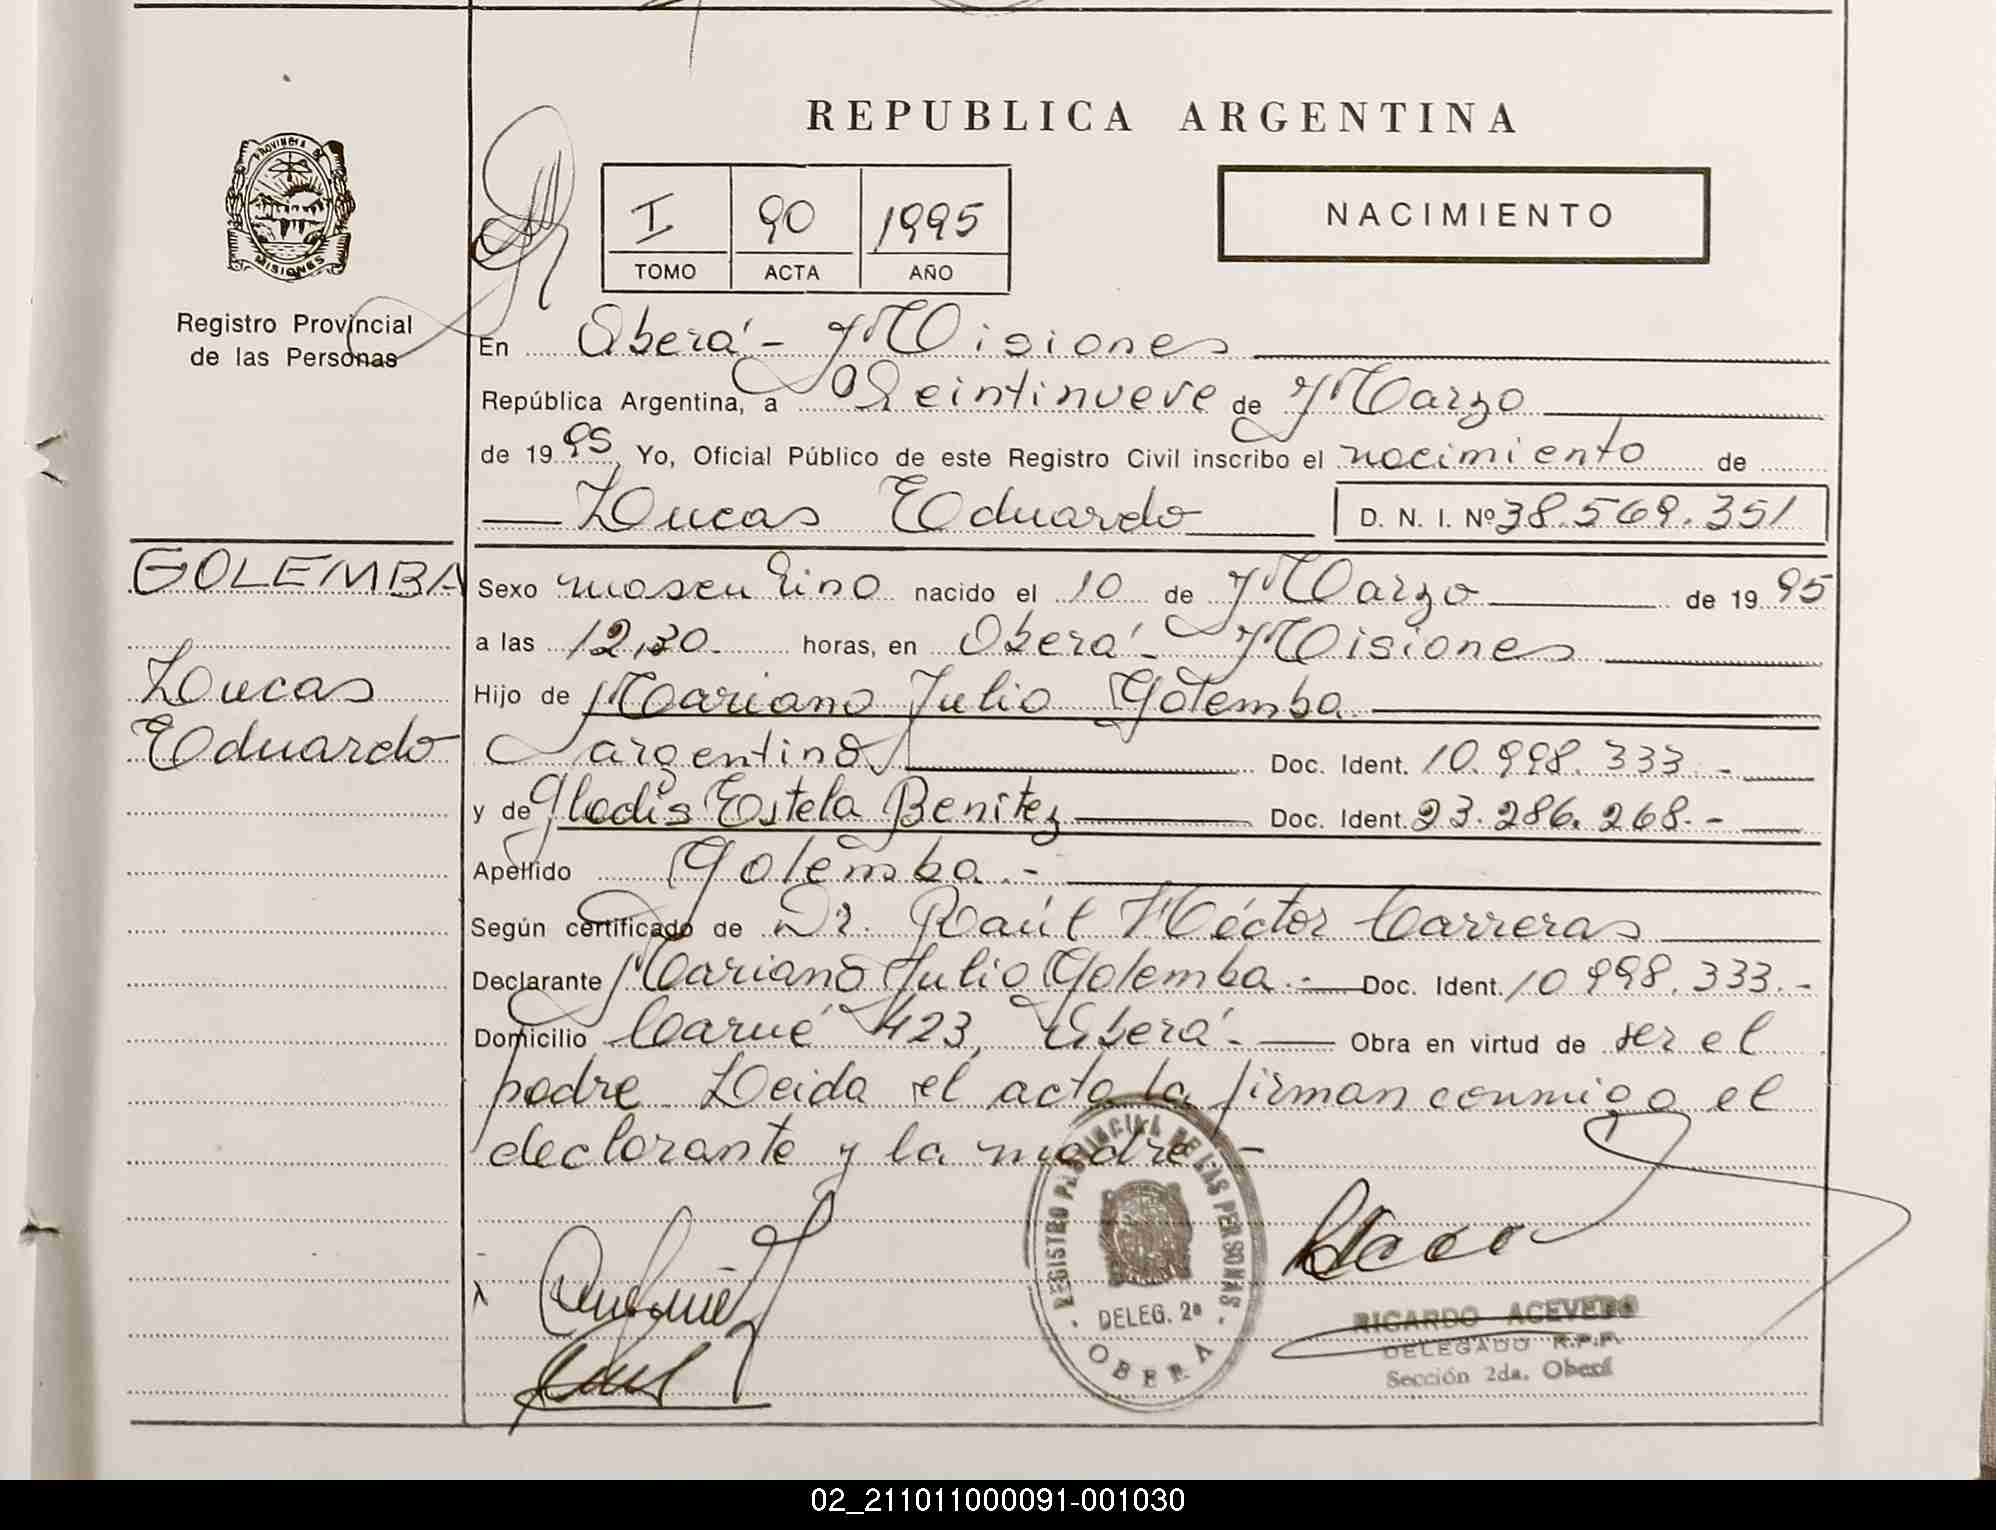 REPUBLICA ARGENTINA
PROVINCIA DE
MISIONES
Registro Provincial
de las Personas
I 90 1995
TOMO ACTA AÑO
NACIMIENTO
En Oberá - Misiones
República Argentina, a Veintinueve de Marzo
de 1995, Yo, Oficial Público de este Registro Civil inscribo el nacimiento de
Lucas Eduardo D. N. I. Nº 38.569.351
GOLEMBA
Lucas
Eduardo
Sexo masculino nacido el 10 de Marzo de 1995
a las 12,30. horas, en Oberá - Misiones
Hijo de Mariano Julio Golemba
argentino Doc. Ident. 10.998.333.-
y de Gladis Estela Benitez Doc. Ident. 23.286.268.-
Apellido Golemba.-
Según certificado de Dr. Raúl Héctor Carreras
Declarante Mariano Julio Golemba.- Doc. Ident. 10 998.333.-
Domicilio Carué 423, Oberá.- Obra en virtud de ser el
padre Leida el acta la firman conmigo el
declarante y la madre.-
REGISTRO PROVINCIAL DE LAS PERSONAS
DELEG. 2ª
OBERA
RICARDO ACEVEDO
DELEGADO R.P.P.
Sección 2da. Oberá
02_211011000091-001030